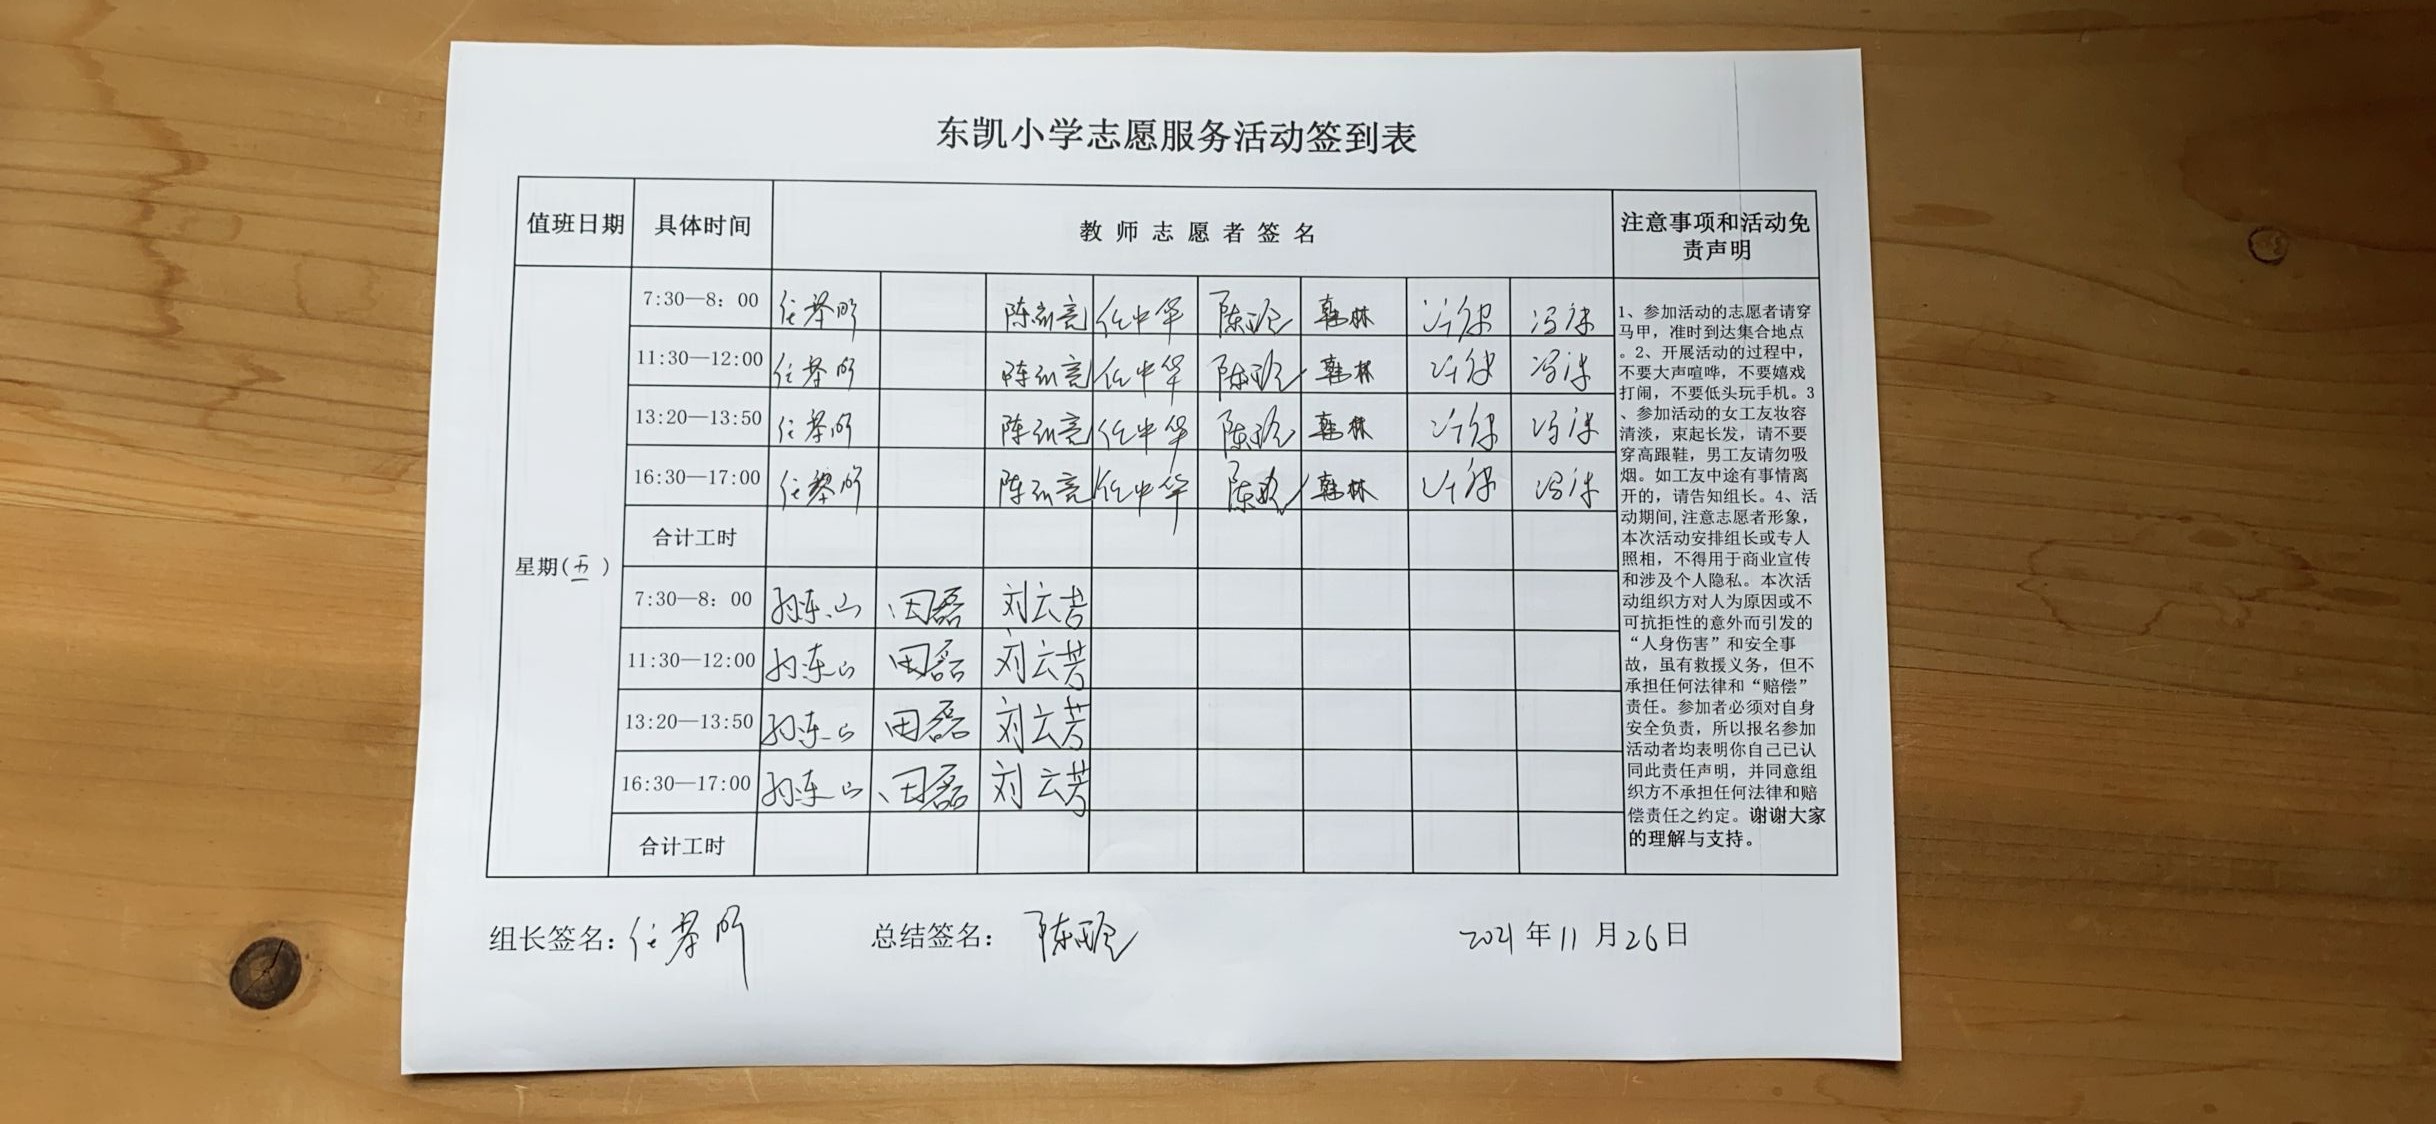 东凯小学志愿服务活动签到表
值班日期 具体时间 教师志愿者签名 注意事项和活动免责声明
7:30—8:00 陈 任中华 陈 韩林
11:30—12:00 陈 任中华 陈 韩林
13:20—13:50 陈 任中华 陈 韩林
16:30—17:00 陈 任中华 陈 韩林
合计工时
星期(五)
7:30—8:00 孙东山 田磊 刘云芳
11:30—12:00 孙东山 田磊 刘云芳
13:20—13:50 孙东山 田磊 刘云芳
16:30—17:00 孙东山 田磊 刘云芳
合计工时
1、参加活动的志愿者请穿
马甲，准时到达集合地点
。2、开展活动的过程中，
不要大声喧哗，不要嬉戏
打闹，不要低头玩手机。3
、参加活动的女工友妆容
清淡，束起长发，请不要
穿高跟鞋，男工友请勿吸
烟。如工友中途有事情离
开的，请告知组长。4、活
动期间,注意志愿者形象，
本次活动安排组长或专人
照相，不得用于商业宣传
和涉及个人隐私。本次活
动组织方对人为原因或不
可抗拒性的意外而引发的
“人身伤害”和安全事
故，虽有救援义务，但不
承担任何法律和“赔偿”
责任。参加者必须对自身
安全负责，所以报名参加
活动者均表明你自己已认
同此责任声明，并同意组
织方不承担任何法律和赔
偿责任之约定。谢谢大家
的理解与支持。
组长签名： 总结签名： 陈 2021年11月26日